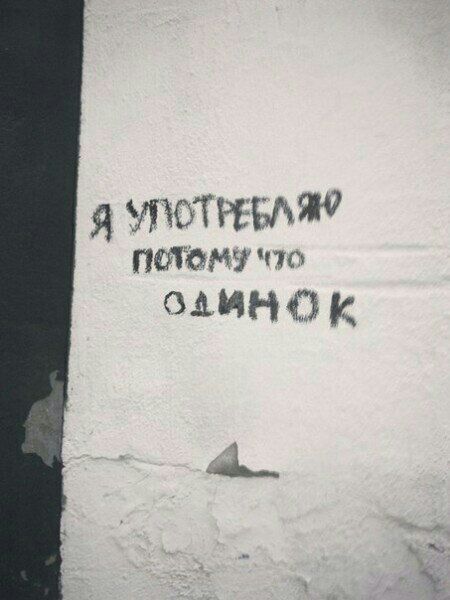 Я УПОТРЕБЛЯЮ
ПОТОМУ ЧТО
ОДИНОК